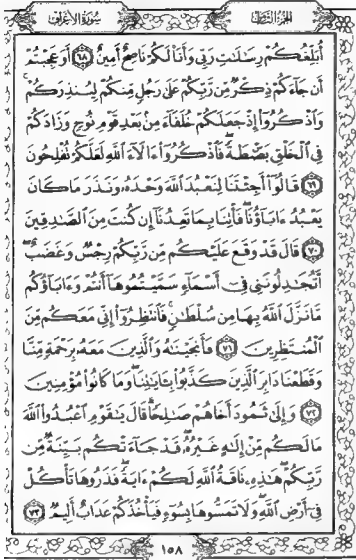 سُورَةُ الأَعْرَافِ الجُزْءُ الثَّامِنُ
أُبَلِّغُكُمْ رِسَٰلَٰتِ رَبِّى وَأَنَا۠ لَكُمْ نَاصِحٌ أَمِينٌ ٦٨ أَوَعَجِبْتُمْ
أَن جَآءَكُمْ ذِكْرٌ مِّن رَّبِّكُمْ عَلَىٰ رَجُلٍ مِّنكُمْ لِيُنذِرَكُمْ ۚ
وَٱذْكُرُوٓا۟ إِذْ جَعَلَكُمْ خُلَفَآءَ مِنۢ بَعْدِ قَوْمِ نُوحٍ وَزَادَكُمْ
فِى ٱلْخَلْقِ بَصْۜطَةً ۖ فَٱذْكُرُوٓا۟ ءَالَآءَ ٱللَّهِ لَعَلَّكُمْ تُفْلِحُونَ
٦٩ قَالُوٓا۟ أَجِئْتَنَا لِنَعْبُدَ ٱللَّهَ وَحْدَهُۥ وَنَذَرَ مَا كَانَ
يَعْبُدُ ءَابَآؤُنَا ۖ فَأْتِنَا بِمَا تَعِدُنَآ إِن كُنتَ مِنَ ٱلصَّٰدِقِينَ
٧٠ قَالَ قَدْ وَقَعَ عَلَيْكُم مِّن رَّبِّكُمْ رِجْسٌ وَغَضَبٌ ۖ
أَتُجَٰدِلُونَنِى فِىٓ أَسْمَآءٍ سَمَّيْتُمُوهَآ أَنتُمْ وَءَابَآؤُكُم
مَّا نَزَّلَ ٱللَّهُ بِهَا مِن سُلْطَٰنٍ ۚ فَٱنتَظِرُوٓا۟ إِنِّى مَعَكُم مِّنَ
ٱلْمُنتَظِرِينَ ٧١ فَأَنجَيْنَٰهُ وَٱلَّذِينَ مَعَهُۥ بِرَحْمَةٍ مِّنَّا
وَقَطَعْنَا دَابِرَ ٱلَّذِينَ كَذَّبُوا۟ بِـَٔايَٰتِنَا ۖ وَمَا كَانُوا۟ مُؤْمِنِينَ
٧٢ وَإِلَىٰ ثَمُودَ أَخَاهُمْ صَٰلِحًا ۗ قَالَ يَٰقَوْمِ ٱعْبُدُوا۟ ٱللَّهَ
مَا لَكُم مِّنْ إِلَٰهٍ غَيْرُهُۥ ۖ قَدْ جَآءَتْكُم بَيِّنَةٌ مِّن
رَّبِّكُمْ ۖ هَٰذِهِۦ نَاقَةُ ٱللَّهِ لَكُمْ ءَايَةً ۖ فَذَرُوهَا تَأْكُلْ
فِىٓ أَرْضِ ٱللَّهِ ۖ وَلَا تَمَسُّوهَا بِسُوٓءٍ فَيَأْخُذَكُمْ عَذَابٌ أَلِيمٌ ٧٣
١٥٨